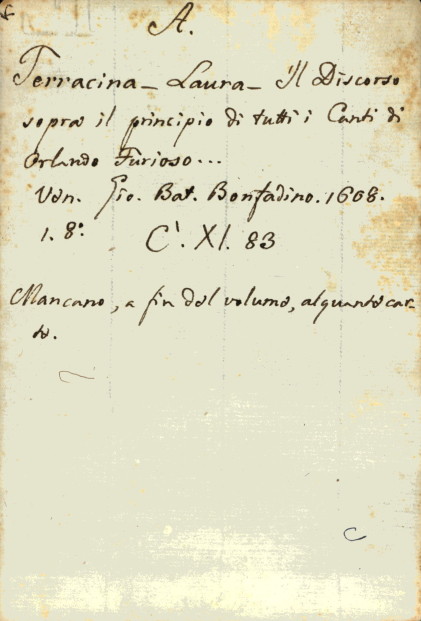 A.
Terracina - Laura - Il Discorso
sopra il principio di tutti i Canti di
Orlando Furioso...
Ven. Gio. Bat. Bonfadino. 1608.
1. 8.° C'. XI. 83
Mancano, a fin del volume, alquante car-
te.